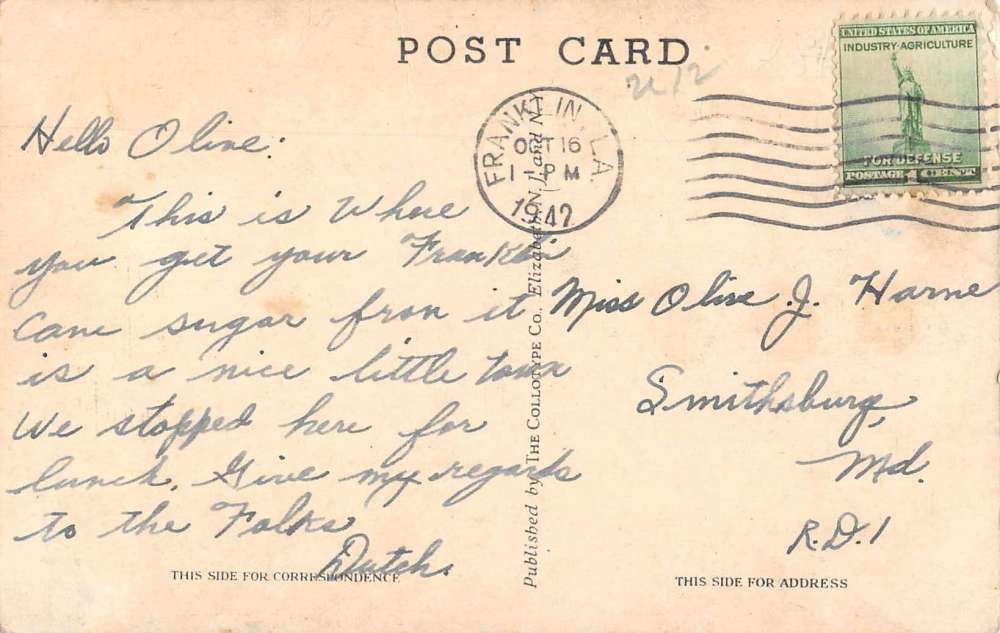 POST CARD
UNITED STATES OF AMERICA
INDUSTRY-AGRICULTURE
FOR DEFENSE
POSTAGE 1 CENT
FRANKLIN, LA.
OCT 16
1 PM
1942
Hello Olive:
This is Where
you get your Franklin
Cane sugar from it
is a nice little town
We stopped here for
lunch. Give my regards
to the Folks
Dutch.
Miss Olive J. Harne
Smithsburg,
Md.
R.D.1
Published by The Collotype Co., Elizabeth, N.J. and N.Y.
THIS SIDE FOR CORRESPONDENCE
THIS SIDE FOR ADDRESS